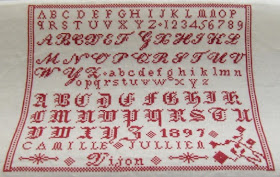 ABCDEFGHIJKLMNOP
QRSTUVWXYZ·123456789
ABCDEFGHIJKL
MNOPQRSTUV
WXYZ·abcdefghiklmn
opqrstuvwxyz
ABCDEFGHIK
LMNOPQRSTU
VWXYZ 1897
CAMILLE JULLIEN
Dijon